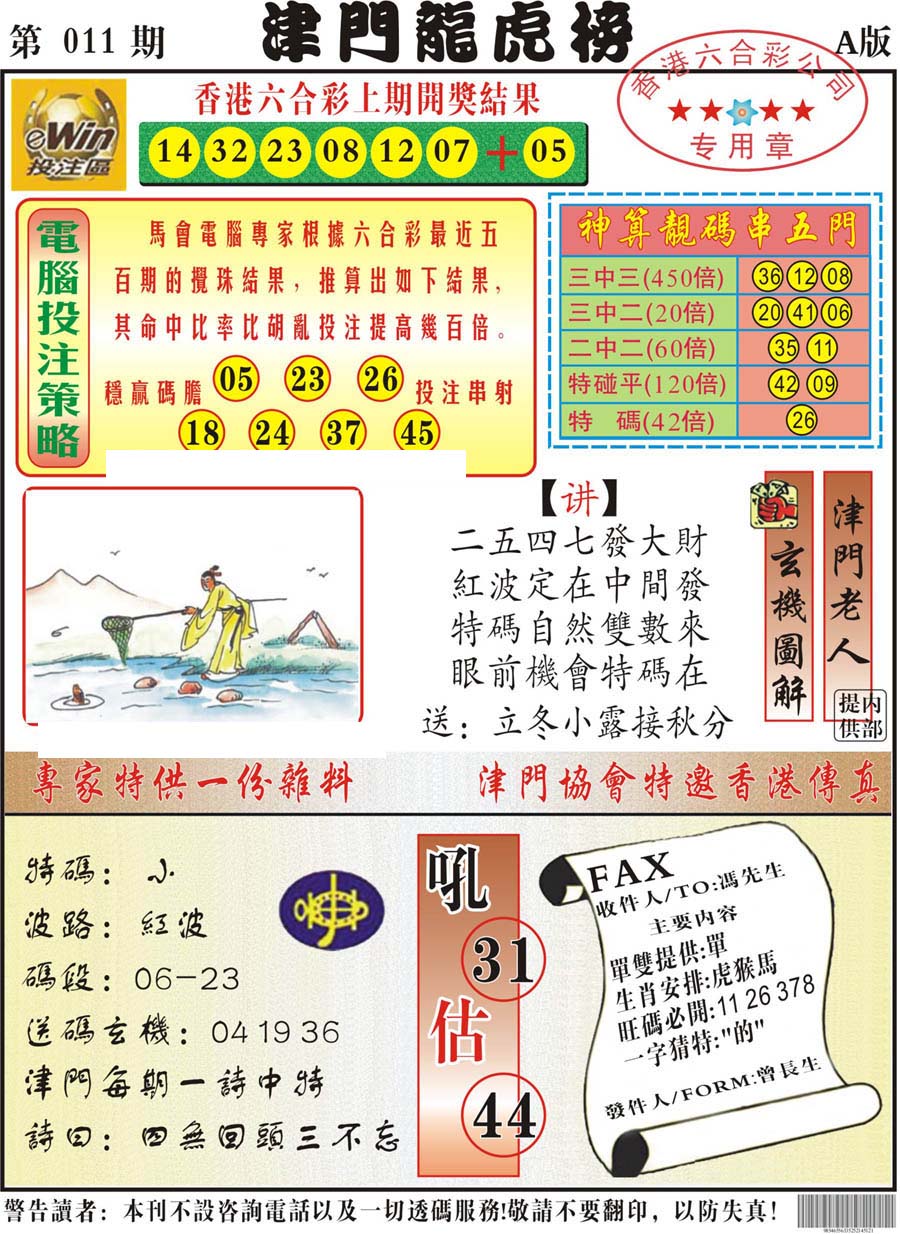 第 011 期
津門龍虎榜
A版
eWin
投注區
香港六合彩上期開獎結果
14 32 23 08 12 07 + 05
香港六合彩公司
★★★★
专用章
電腦投注策略
馬會電腦專家根據六合彩最近五
百期的攪珠結果，推算出如下結果，
其命中比率比胡亂投注提高幾百倍。
穩贏碼膽 05 23 26 投注串射
18 24 37 45
神算靚碼串五門
三中三(450倍) 36 12 08
三中二(20倍) 20 41 06
二中二(60倍) 35 11
特碰平(120倍) 42 09
特 碼(42倍) 26
【讲】
二五四七發大財
紅波定在中間發
特碼自然雙數來
眼前機會特碼在
送：立冬小露接秋分
玄機圖解
津門老人
内部提供
專家特供一份雜料
津門協會特邀香港傳真
特碼：小
波路：紅波
碼段：06-23
送碼玄機：04 19 36
津門每期一詩中特
詩曰：四無回頭三不忘
吼
31
估
44
FAX
收件人/TO:馮先生
主要内容
單雙提供:單
生肖安排:虎猴馬
旺碼必開:11 26 378
一字猜特:"的"
發件人/FORM:曾長生
警告讀者：本刊不設咨詢電話以及一切透碼服務!敬請不要翻印，以防失真!